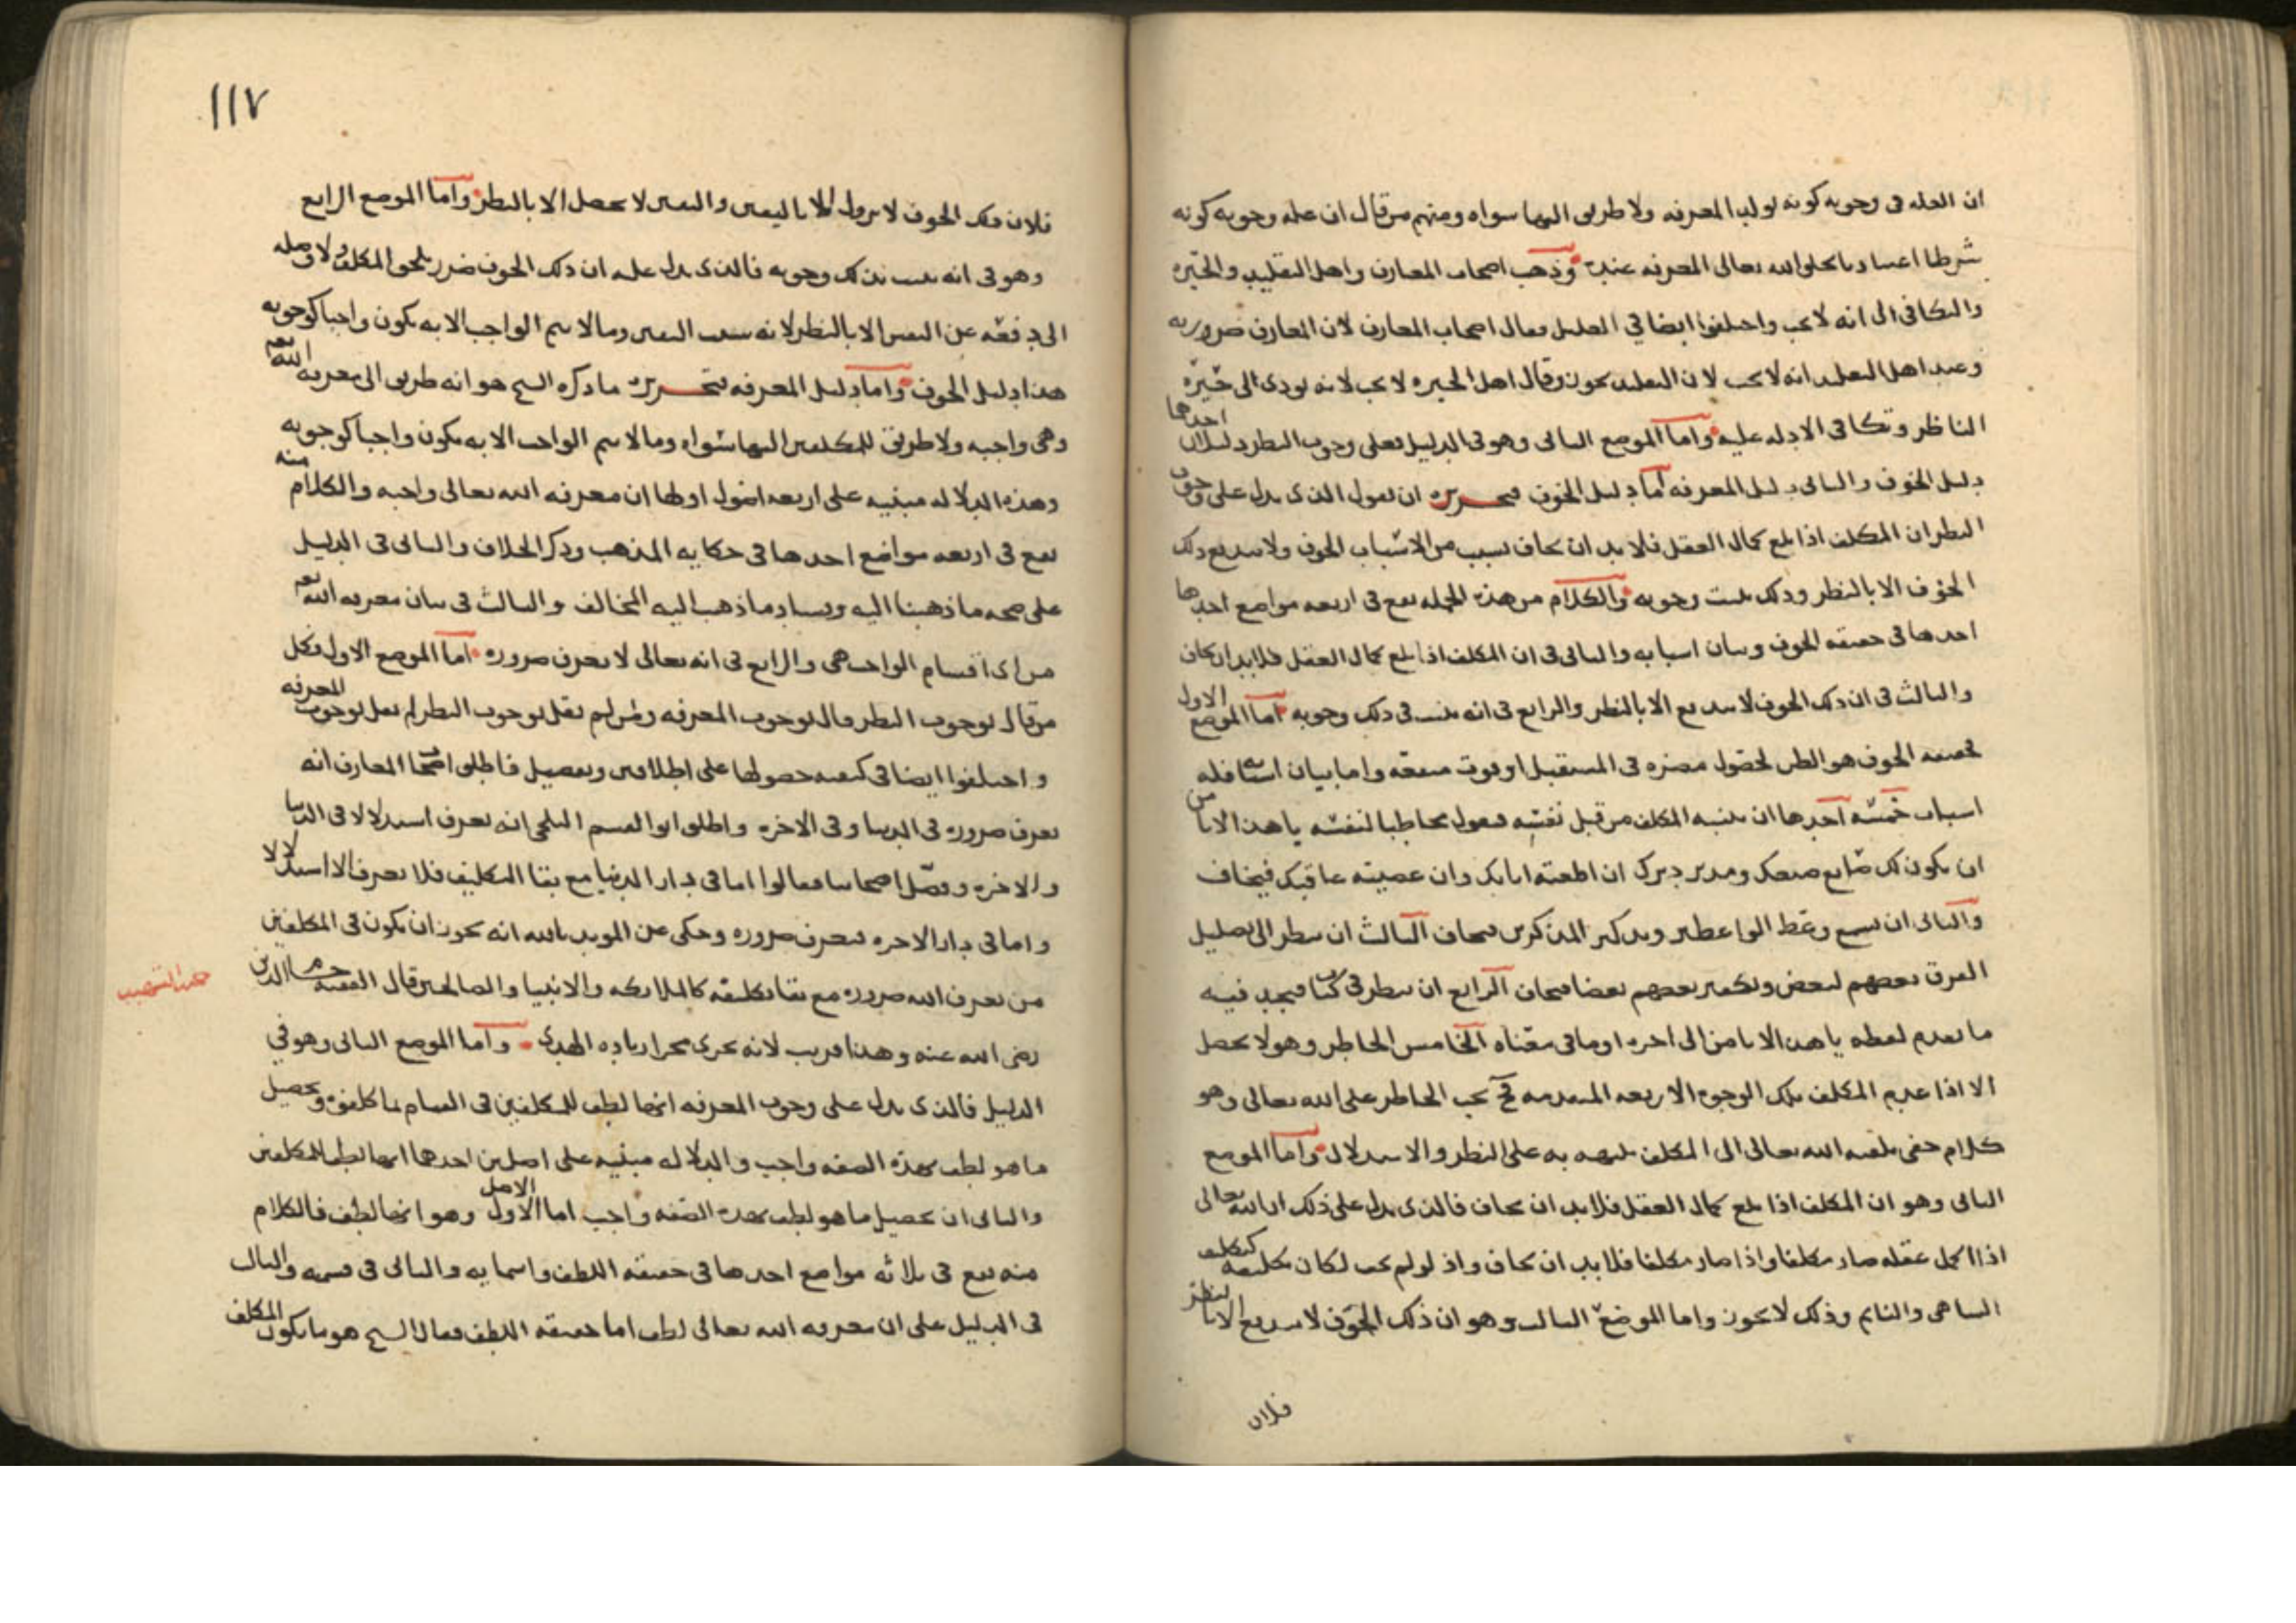 ان العله في وجوبه كونه يولد المعرفه ولا طريق اليها سواه ومنهم من قال ان عله وجوبه كونه
شرطا اعتياديا يخلق الله تعالى المعرفه عنده وذهب اصحاب المعارف واهل التقليد والحيره
والتكافي الى انه لا يجب واختلفوا ايضا في التعليل فقال اصحاب المعارف لان المعارف ضروريه
وعند اهل التقليد انه لا يجب لان التقليد يجوز وقال اهل الحيره لا يجب لانه يودي الى حيرة
الناظر وتكافي الادله عليه واما الموضع الثاني وهو في الدليل فعلى وجوب النظر دليلان احدهما
دليل الخوف والثاني دليل المعرفه اما دليل الخوف فتحريره ان نقول الذي يدل على وجوب
النظر ان المكلف اذا بلغ كمال العقل فلا بد ان يخاف لسبب من الاسباب الخوف ولا يندفع ذلك
الخوف الا بالنظر وذلك يثبت وجوبه والكلام من هذه الجمله يقع في اربعه مواضع احدها
احدها في حقيقه الخوف وبيان اسبابه والثاني في ان المكلف اذا بلغ كمال العقل فلا بد ان يخاف
والثالث في ان ذلك الخوف لا يندفع الا بالنظر والرابع في انه يثبت في ذلك وجوبه اما الموضع الاول
فحقيقه الخوف هو الظن لحصول مضره في المستقبل او فوت منفعه واما بيان اسبابه فله
اسباب خمسه احدها ان يتنبه المكلف من قبل نفسه فيقول مخاطبا لنفسه يا هذا الا تامن
ان يكون لك صانع صنعك ومدبر دبرك ان اطعته اثابك وان عصيته عاقبك فيخاف
والثاني ان يسمع وعظ الواعظين وتذكير المذكرين فيخاف الثالث ان ينظر الى تضليل
الفرق بعضهم لبعض وتكفير بعضهم بعضا فيخاف الرابع ان ينظر في كتاب فيجد فيه
ما تقدم لفظه يا هذا الا تامن الى اخره او ما في معناه الخامس الخاطر وهو لا يحصل
الا اذا عدم المكلف تلك الوجوه الاربعه المتقدمه فح يجب الخاطر على الله تعالى وهو
كلام خفي يلقيه الله تعالى الى المكلف ينبهه به على النظر والاستدلال واما الموضع
الثاني وهو ان المكلف اذا بلغ كمال العقل فلا بد ان يخاف فالذي يدل على ذلك ان الله تعالى
اذا اكمل عقله صار مكلفا واذا صار مكلفا فلا بد ان يخاف واذ لو لم يخف لكان تكليفه كتكليف
الساهي والنايم وذلك لا يجوز واما الموضع الثالث وهو ان ذلك الخوف لا يندفع الا بالنظر
فلان
١١٧
فلان ذلك الخوف لا يزول الا باليقين واليقين لا يحصل الا بالنظر واما الموضع الرابع
وهو في انه يثبت بذلك وجوبه فالذي يدل عليه ان ذلك الخوف ضرر يلحق المكلف ولا وصله
الى دفعه عن النفس الا بالنظر لانه سبب اليقين وما لا يتم الواجب الا به يكون واجبا كوجوبه
هذا دليل الخوف واما دليل المعرفه فتحريره ما ذكره الشيخ هو انه طريق الى معرفه الله تعم
وهي واجبه ولا طريق للمكلفين اليها سواه وما لا يتم الواجب الا به يكون واجبا كوجوبه
وهذه الدلاله مبنيه على اربعه اصول اولها ان معرفه الله تعالى واجبه والكلام منه
يقع في اربعه مواضع احدها في حكايه المذهب وذكر الخلاف والثاني في الدليل
على صحه ما ذهبنا اليه وفساد ما ذهب اليه المخالف والثالث في بيان معرفه الله تعم
من اي اقسام الواجب هي والرابع في انه تعالى لا يعرف ضروره اما الموضع الاول فكل
من قال بوجوب النظر قال بوجوب المعرفه ومن لم يقل بوجوب النظر لم يقل بوجوب المعرفه
واختلفوا ايضا في كيفيه حصولها على اطلاقين وتفصيل فاطلق اصحاب المعارف انه
يعرف ضروره في الدنيا وفي الاخره واطلق ابو القسم البلخي انه يعرف استدلالا في الدنيا
والاخره وفصل اصحابنا فقالوا اما في دار الدنيا مع بقا التكليف فلا يعرف الا استدلالا
واما في دار الاخره فيعرف ضروره وحكي عن المويد بالله انه يجوز ان يكون في المكلفين
من يعرف الله ضروره مع بقا تكليفه كالملائكه والانبيا والصالحين قال الفقيه حسام الدين
رضى الله عنه وهذا قريب لانه يجري مجرا زياده الهدى واما الموضع الثاني وهو في
الدليل فالذي يدل على وجوب المعرفه انها لطف للمكلفين في القيام بما كلفوه وتحصيل
ما هو لطف بهذه الصفه واجب والدلاله مبنيه على اصلين احدها انها لطف للمكلفين
والثاني ان تحصيل ما هو لطف بهذه الصفه واجب اما الاصل الاول وهو انها لطف فالكلام
منه يقع في ثلاثه مواضع احدها في حقيقه اللطف واسمايه والثاني في قسمه والثالث
في الدليل على ان معرفه الله تعالى لطف اما حقيقه اللطف فقال الشيخ هو ما يكون المكلف